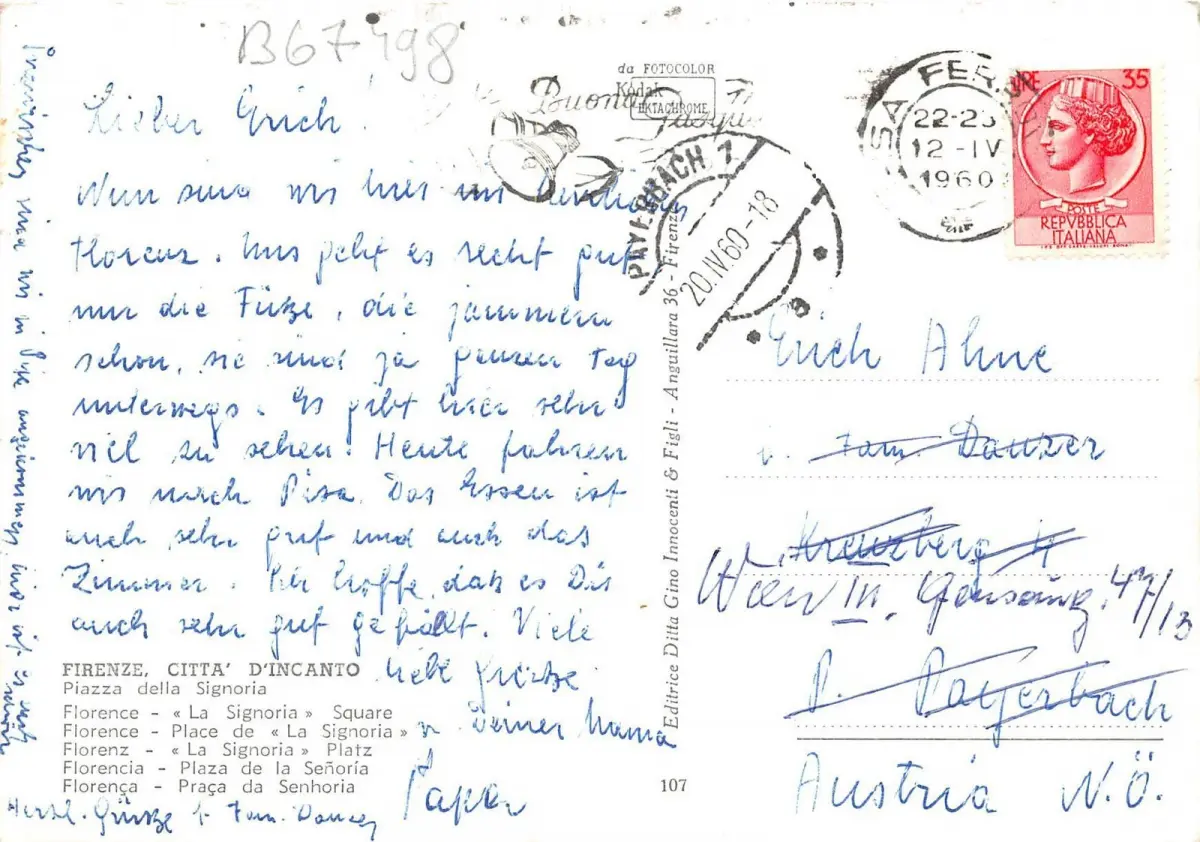 B67498
Lieber Erich!
Nun sind wir hier im herrlichen
Florenz. Uns geht es recht gut
nur die Füße, die jammern
schon, sie sind ja ganzen Tag
unterwegs. Es gibt hier sehr
viel zu sehen. Heute fahren
wir nach Pisa. Das Essen ist
auch sehr gut und auch das
Zimmer. Ich hoffe, daß es Dir
auch sehr gut gefällt. Viele
liebe Grüße
v. Deiner Mama
Papa
Herzl. Grüße b. Fam. Danzer
Inzwischen sind wir in Pisa angekommen, hier ist es sehr schön
FIRENZE, CITTA' D'INCANTO
Piazza della Signoria
Florence - « La Signoria » Square
Florence - Place de « La Signoria »
Florenz - « La Signoria » Platz
Florencia - Plaza de la Señoría
Florença - Praça da Senhoria
da FOTOCOLOR
Kodak
EKTACHROME
Buona Pasqua
PAYERBACH 1
20.IV.60-18
a
Editrice Ditta Gino Innocenti & Figli - Anguillara 36 - Firenze
107
22-23
12-IV
1960
LIRE 35
POSTE
REPVBBLICA
ITALIANA
Erich Ahne
b. Fam. Danzer
Kreuzberg 4
Wien III, 47/13
P. Payerbach
Austria N.Ö.